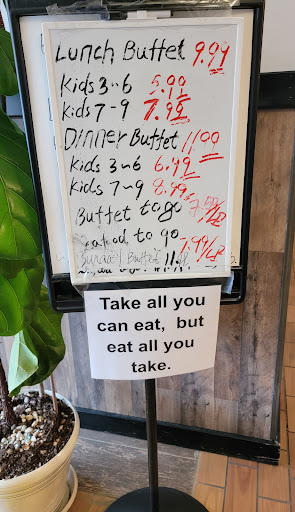 Lunch Buffet 9.99
Kids 3-6 5.99
Kids 7-9 7.99
Dinner Buffet 11.99
Kids 3-6 6.99
Kids 7-9 8.99
Buffet to go /LB
to go 7.99/LB
Sunday Buffet
Take all you
can eat, but
eat all you
take.